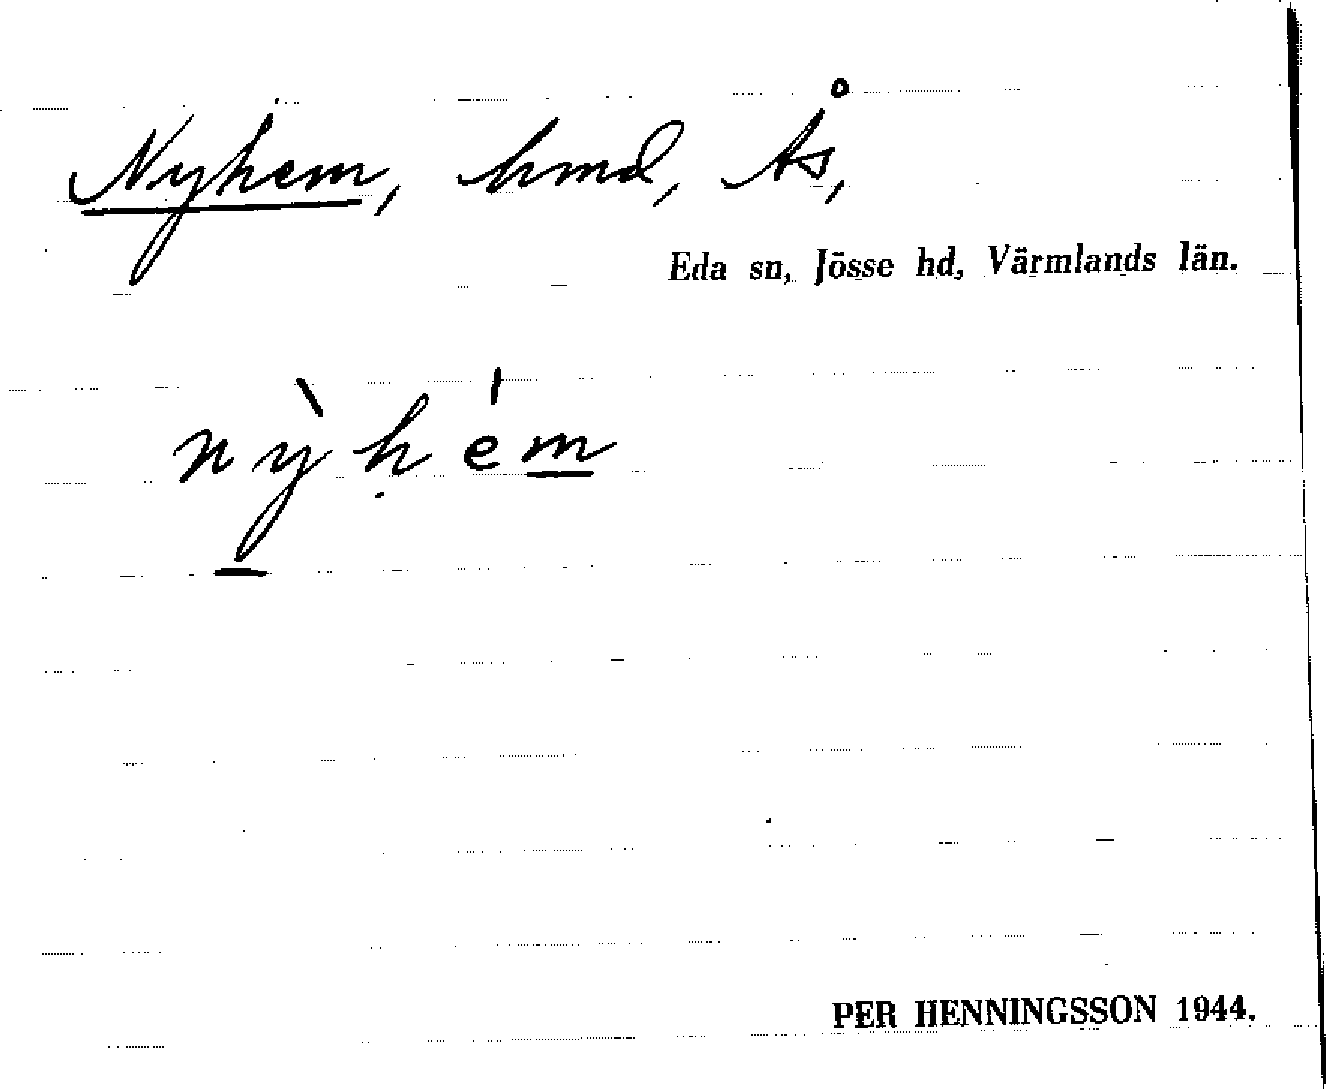 Nyhem, hmd, Ås,
Eda sn, Jösse hd, Värmlands län.
nỳhém
PER HENNINGSSON 1944.